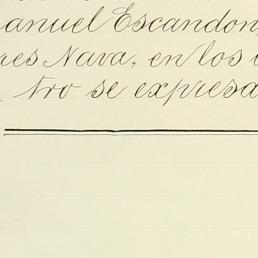 anuel Escandon,
res Nava, en los
tro se expresa